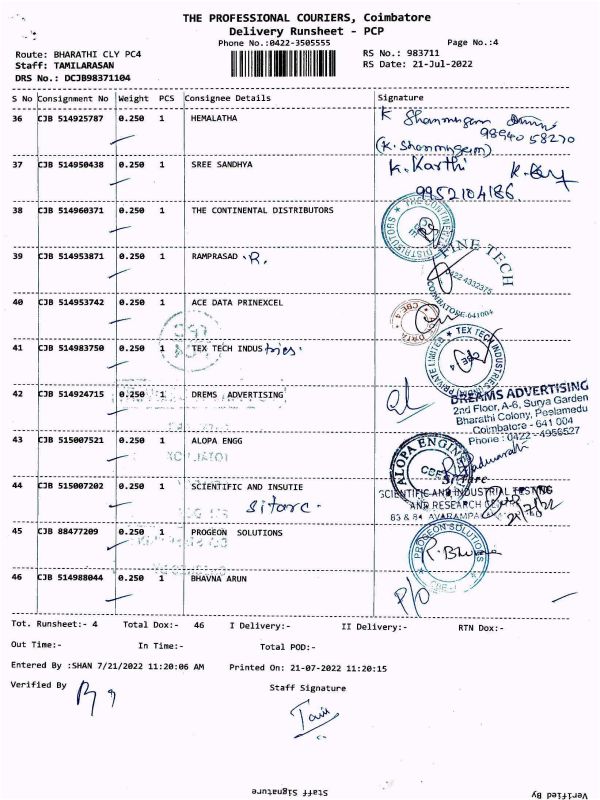 THE PROFESSIONAL COURIERS, Coimbatore
Delivery Runsheet - PCP
Phone No.:0422-3505555
Page No.:4
Route: BHARATHI CLY PC4
RS No.: 983711
Staff: TAMILARASAN
RS Date: 21-Jul-2022
DRS No.: DCJB98371104
S No Consignment No Weight PCS Consignee Details Signature
36 CJB 514925787 0.250 1 HEMALATHA
K Shanmugam
98940 58270
(K. Shanmugam)
37 CJB 514950438 0.250 1 SREE SANDHYA
K. Karthi
9952104186.
38 CJB 514960371 0.250 1 THE CONTINENTAL DISTRIBUTORS
THE CONTINENTAL DISTRIBUTORS
39 CJB 514953871 0.250 1 RAMPRASAD .R.
FINE TECH
0422 4332375
COIMBATORE-641004
40 CJB 514953742 0.250 1 ACE DATA PRINEXCEL
CBE 4
41 CJB 514983750 1 TEX TECH INDUStries.
TEX TECH INDUSTRIES INDIA PRIVATE LIMITED
CBE 4
42 CJB 514924715 0.250 1 DREMS ADVERTISING
DREAMS ADVERTISING
2nd Floor, A-6, Surya Garden
Bharathi Colony, Peelamedu
Coimbatore - 641 004
Phone : 0422 - 4956527
43 CJB 515007521 0.250 1 ALOPA ENGG
ALOPA ENGINEE
44 CJB 515007202 0.250 1 SCIENTIFIC AND INSUTIE
Sitarc.
Si'Tarc
SCIENTIFIC AND INDUSTRIAL TESTING
AND RESEARCH CENTRE
83 & 84 AVARAMPA
21/7/22
45 CJB 88477209 0.250 1 PROGEON SOLUTIONS
PROGEON SOLUTIONS
46 CJB 514988044 0.250 1 BHAVNA ARUN
P/O
Tot. Runsheet:- 4 Total Dox:- 46 I Delivery:- II Delivery:- RTN Dox:-
Out Time:- In Time:- Total POD:-
Entered By :SHAN 7/21/2022 11:20:06 AM Printed On: 21-07-2022 11:20:15
Verified By
Staff Signature
Staff Signature
Verified By